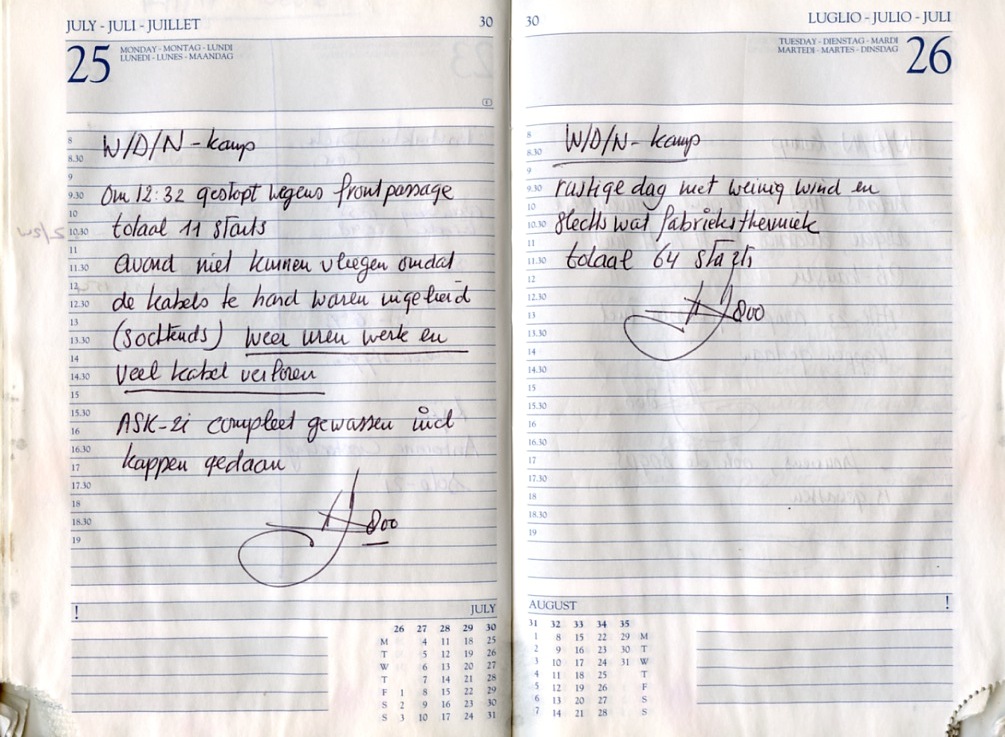 JULY - JULI - JUILLET 30
25 MONDAY - MONTAG - LUNDI
LUNEDI - LUNES - MAANDAG
8
8.30
9
9.30
10
10.30
11
11.30
12
12.30
13
13.30
14
14.30
15
15.30
16
16.30
17
17.30
18
18.30
19
W/D/N - kamp
Om 12:32 gestopt wegens frontpassage
totaal 11 starts
avond niet kunnen vliegen omdat
de kabels te hard waren ingelierd
(sochtends) weer uren werk en
veel kabel verloren
ASK-21 compleet gewassen incl
kappen gedaan
800
! JULY
26 27 28 29 30
M 4 11 18 25
T 5 12 19 26
W 6 13 20 27
T 7 14 21 28
F 1 8 15 22 29
S 2 9 16 23 30
S 3 10 17 24 31
30 LUGLIO - JULIO - JULI
TUESDAY - DIENSTAG - MARDI
MARTEDI - MARTES - DINSDAG 26
8
8.30
9
9.30
10
10.30
11
11.30
12
12.30
13
13.30
14
14.30
15
15.30
16
16.30
17
17.30
18
18.30
19
W/D/N - kamp
rustige dag met weinig wind en
slechts wat fabrieksthermiek
totaal 64 starts
800
AUGUST !
31 32 33 34 35
1 8 15 22 29 M
2 9 16 23 30 T
3 10 17 24 31 W
4 11 18 25 T
5 12 19 26 F
6 13 20 27 S
7 14 21 28 S